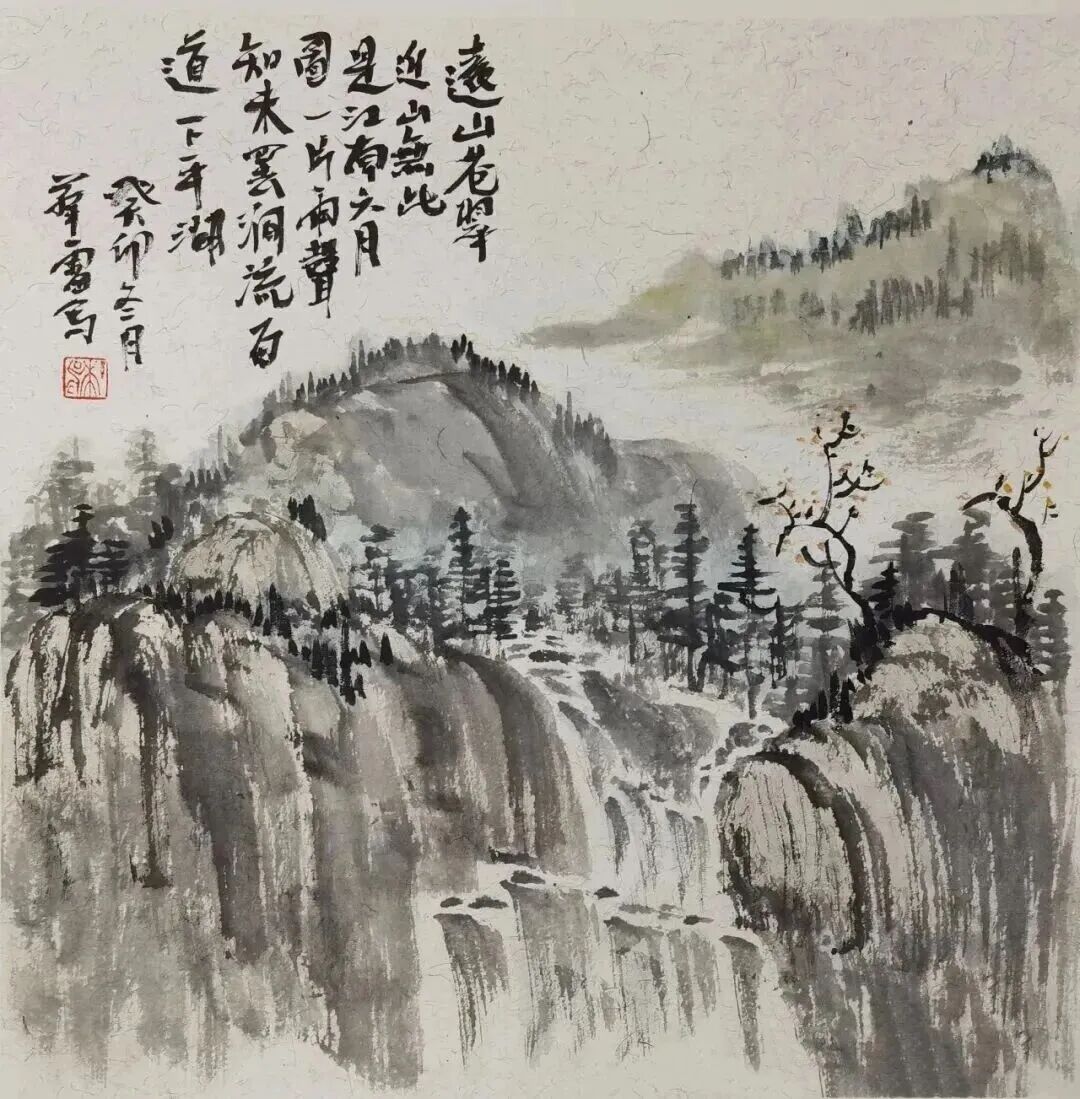 遠山苍翠
近山無此
是江南六月
圖一片雨聲
知未罢涧流百
道下平湖
癸卯冬月
写